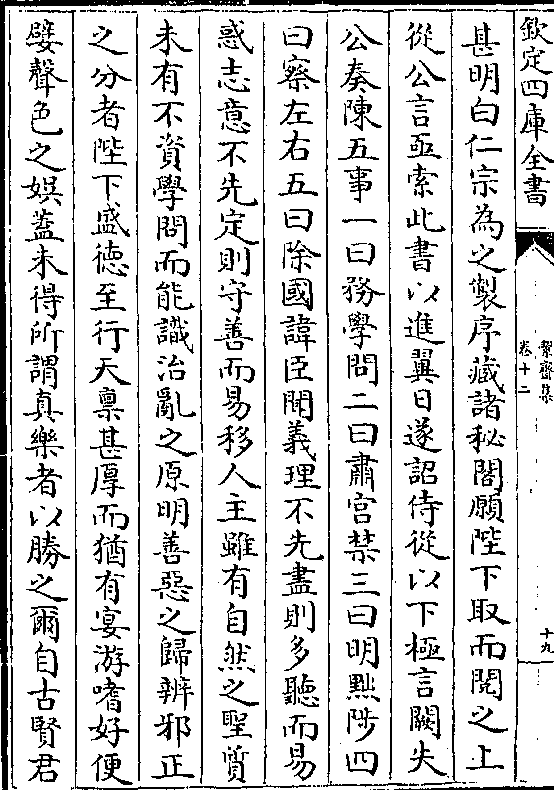 欽定四庫全書
絜齋集
卷十二
十九
甚明白仁宗為之製序藏諸秘閣願陛下取而閱之上
從公言亟索此書以進翼日遂詔侍從以下極言闕失
公奏陳五事一曰務學問二曰肅宫禁三曰明黜陟四
曰察左右五曰除國諱臣聞義理不先盡則多聽而易
惑志意不先定則守善而易移人主雖有自然之聖質
未有不資學問而能識治亂之原明善惡之歸辨邪正
之分者陛下盛徳至行天禀甚厚而猶有宴游嗜好便
嬖聲色之娛蓋未得所謂真樂者以勝之爾自古賢君